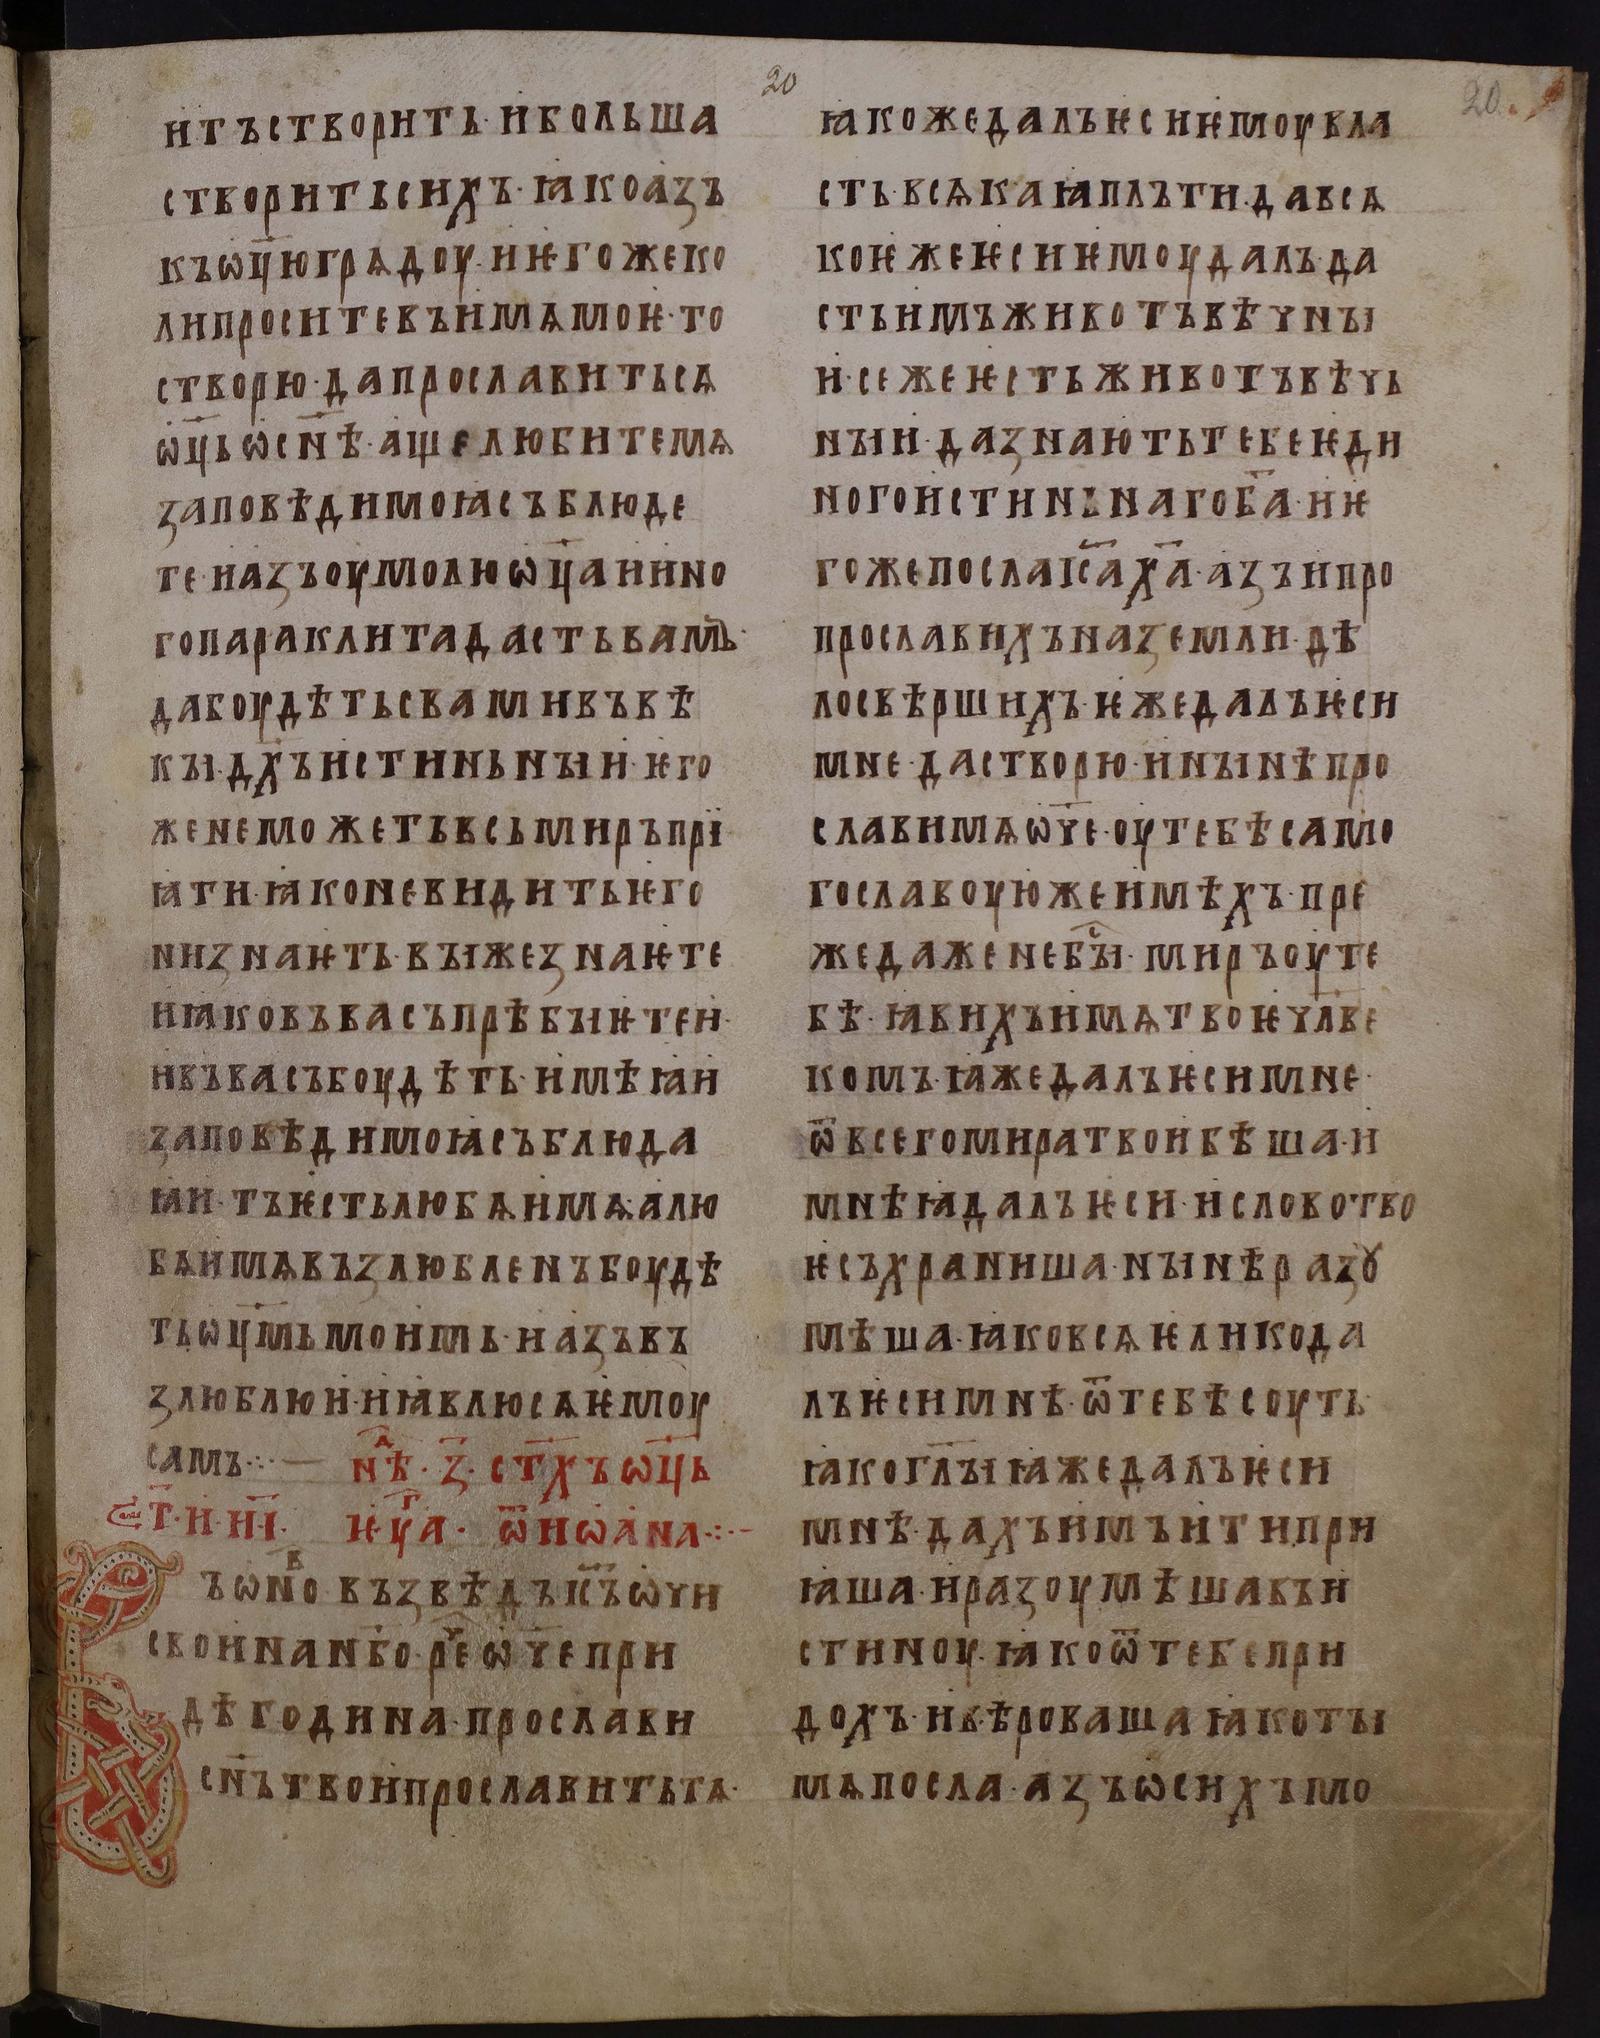 20
20.
итъстворить·ибольша
створитьсихъ·ꙗкоазъ
къѡц҃югрѧдоу·иѥгожеко
липроситевъимѧмоѥ·то
створю·дапрославитьсѧ
ѡц҃ьѡсн҃ѣ·ащелюбитемѧ
заповѣдимоꙗсъблюде
те·иазъоумолюѡц҃аиино
гопараклитадастьвамъ·
дабоудѣтьсвамивъвѣ
кы·дх҃ъистиньныи·ѥго
женеможетьвсьмиръпрї
ꙗти·ꙗконевидитьѥго
низнаѥть·выжезнаѥте
иꙗковъвасъпрѣбыѥтеи·
ивъвасъбоудѣть·имѣꙗи
заповѣдимоꙗсъблюда
ꙗи·тъѥстьлюбѧимѧ·алю
бѧимѧвъзлюбленъбоудѣ
тьѡц҃мьмоимь·иазъвъ
злюблюи·иꙗвлюсѧѥмоу
самъ·:·— нⷣѣ·з҃·ст҃хъѡц҃ь
т҃·и·н҃і· ѥуⷢа· ѿиѡана·:·—
ъѡноⷡ҇възвѣдъіс҃ъѡчи
своинанб҃о·реⷱѡч҃епри
дѣгодина·прослави
сн҃ътвоипрославитьтѧ·
ꙗкожедалъѥсиѥмоувла
сть·всѧкаꙗплъти·давсѧ
коѥжеѥсиѥмоудалъ·да
стьимъживотъвѣчны
и·сежеѥстьживотъвѣчь
ныи·дазнаютьтебеѥди
ногоистиньнагоба҃·иѥ
гожепослаіс҃ах҃а·азъипро
прославихъназемли·дѣ
лосвѣрших̾ъ·ѥжедалъѥси
мне·дастворю·инынѣпро
славимѧѡч҃е·оутебѣсамо
гославоуюжеимѣхъ·пре
жедаженебыⷭ҇·миръоуте
бѣ·ꙗвихъимѧтвоѥчл҃ве
комъ·ꙗжедалъѥсимне·
ѿвсегомиратвоибѣша·и
мнѣꙗдалъѥси·исловотво
ѥсъхраниша·нынѣразꙋ
мѣша·ꙗковсѧѥликода
лъѥсимнѣ·ѿтебѣсоуть
ꙗкогл҃ыꙗжедалъѥси
мнѣ·дахъимъитипри
ꙗша·иразоумѣшавъи
стиноу·ꙗкоѿтебепри
дохъ·ивѣровашаꙗкоты
мѧпосла·азъѡсихъмо